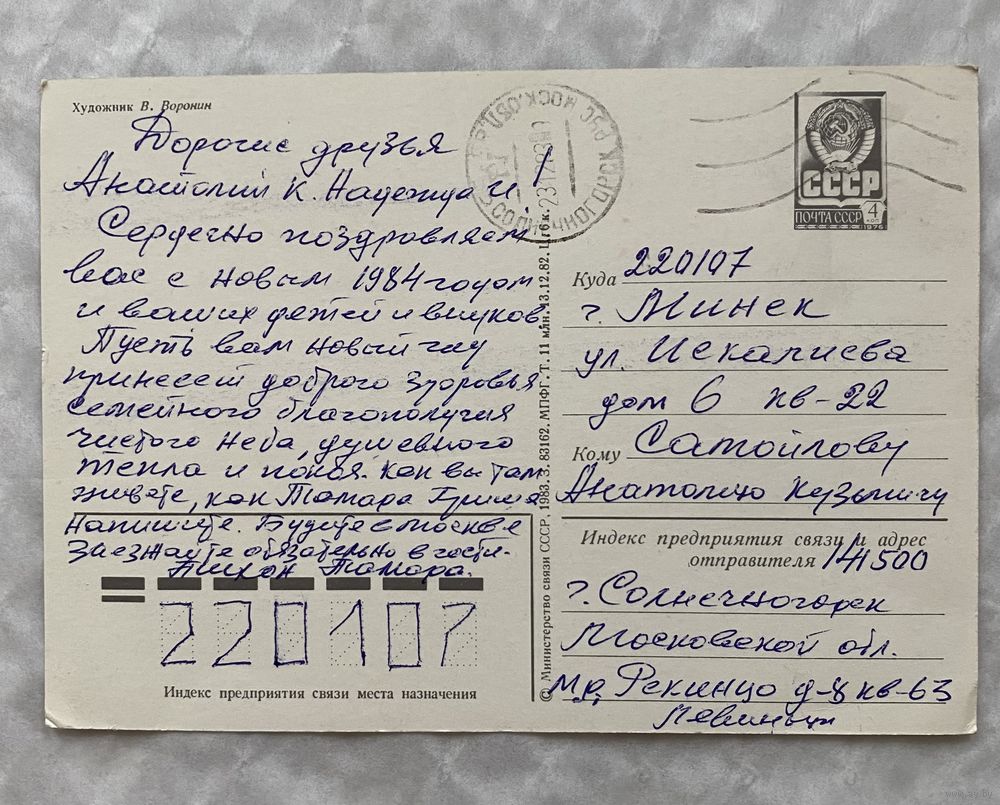 Художник В. Воронин
Дорогие друзья
Анатолий К. Надежда И!
Сердечно поздравляем
вас с новым 1984 годом
и ваших детей и внуков
Пусть вам новый год
принесет доброго здоровья
семейного благополучия
чистого неба, душевного
тепла и покоя. Как вы там
живете, как Тамара Гриша
напишите. Будите в москве
заезжайте обязательно в гости.
Тихон Тамара.
220107
Индекс предприятия связи места назначения
© Министерство связи СССР, 1983. З. 83162. МПФГ. Т. 11 млн. 13.12.82. Ц. 6 к.
СОЛНЕЧНОГОРСК РУС МОСК.ОБЛ.
СССР
ПОЧТА СССР 4 КОП
1976
Куда 220107
г. Минск
ул. Искалиева
дом 6 кв-22
Кому Самойлову
Анатолию Кузьмичу
Индекс предприятия связи и адрес
отправителя 141500
г. Солнечногорск
Московской обл.
м.р. Рекинцо д-8 кв-63